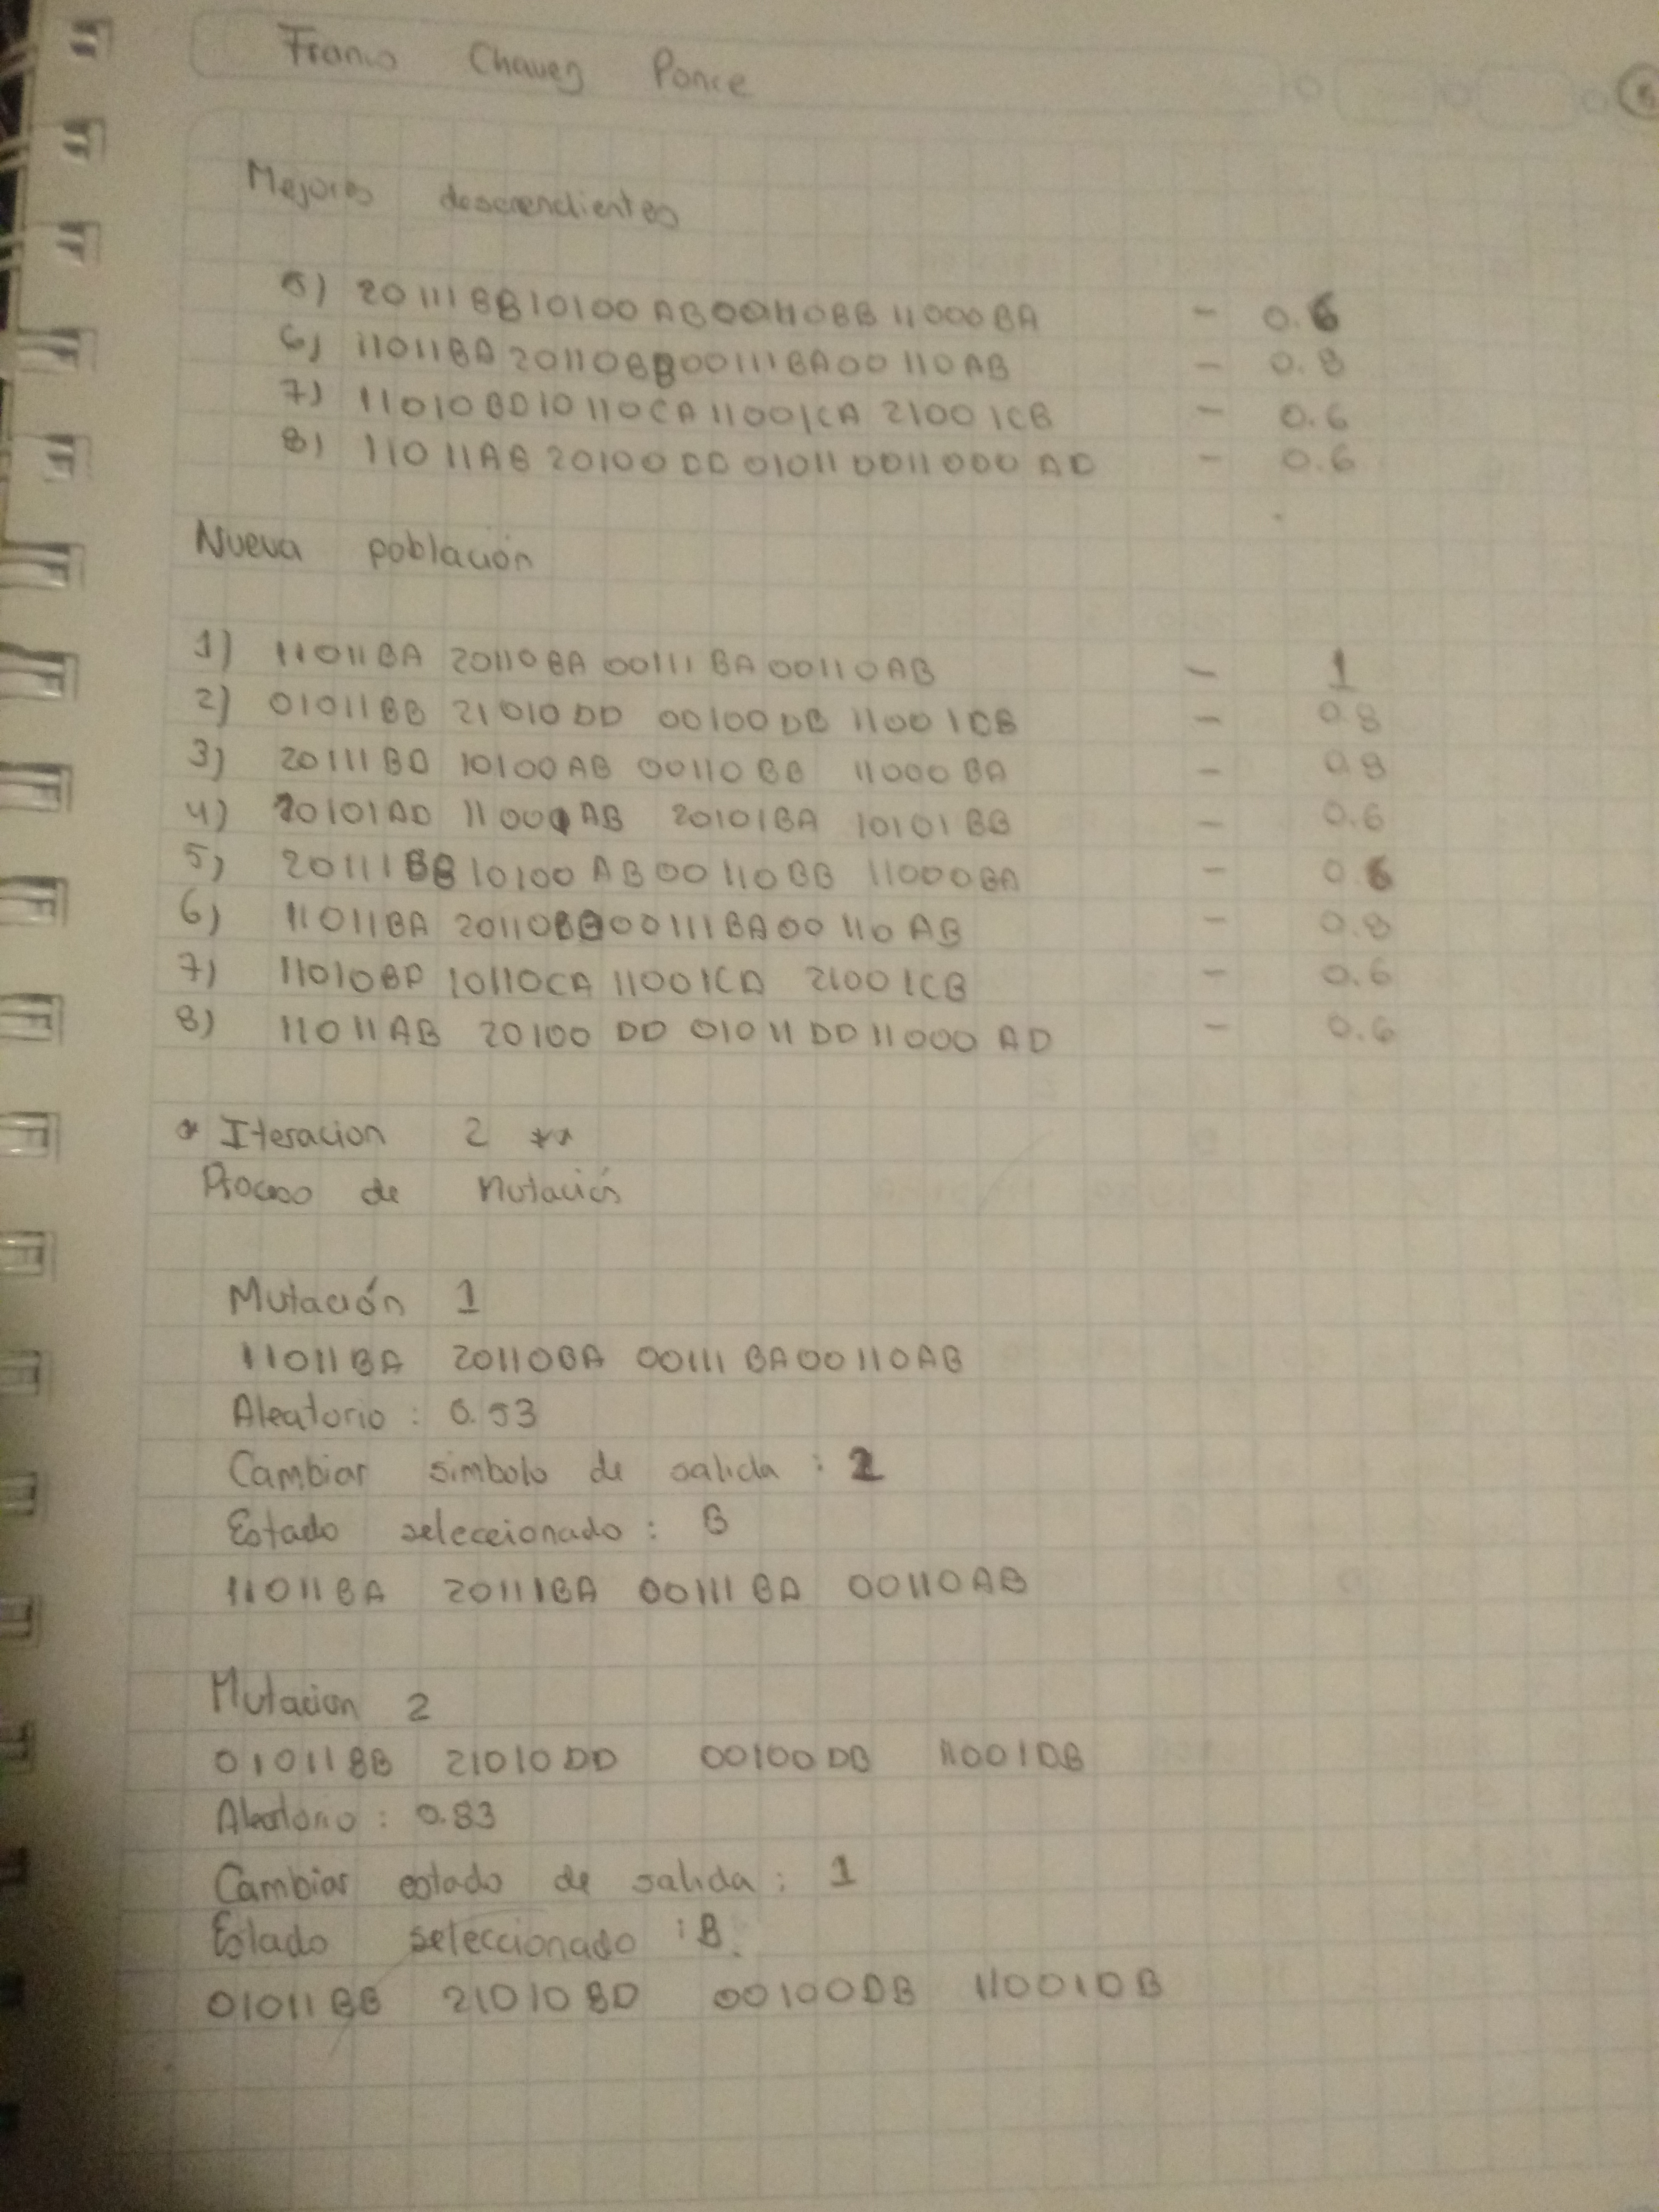 Franco Chavez Ponce
6
Mejores descendientes
5) 20111BB10100AB00110BB11000BA - 0.6
6) 11011BA 20110BB00111BA00110AB - 0.8
7) 11010BD10110CA11001CA 21001CB - 0.6
8) 11011AB 20100DD 01011DD11000AD - 0.6
Nueva población
1) 11011BA 20110BA 00111BA 00110AB - 1
2) 01011BB 21010DD 00100DB 11001CB - 0.8
3) 20111BD 10100AB 00110BB 11000BA - 0.8
4) 20101AD 11000AB 20101BA 10101BB - 0.6
5) 20111BB 10100AB 00110BB 11000BA - 0.6
6) 11011BA 20110BB00111BA00110AB - 0.8
7) 11010BD 10110CA 11001CA 21001CB - 0.6
8) 11011AB 20100 DD 01011DD11000 AD - 0.6
* Iteracion 2 **
Proceso de Mutación
Mutación 1
11011BA 20110BA 00111BA00110AB
Aleatorio : 0.53
Cambiar simbolo de salida : 2
Estado seleccionado : B
11011BA 20111BA 00111BA 00110AB
Mutacion 2
01011BB 21010DD 00100DB 11001DB
Aleatorio : 0.83
Cambiar estado de salida : 1
Estado seleccionado : B.
01011BB 21010BD 00100DB 11001DB